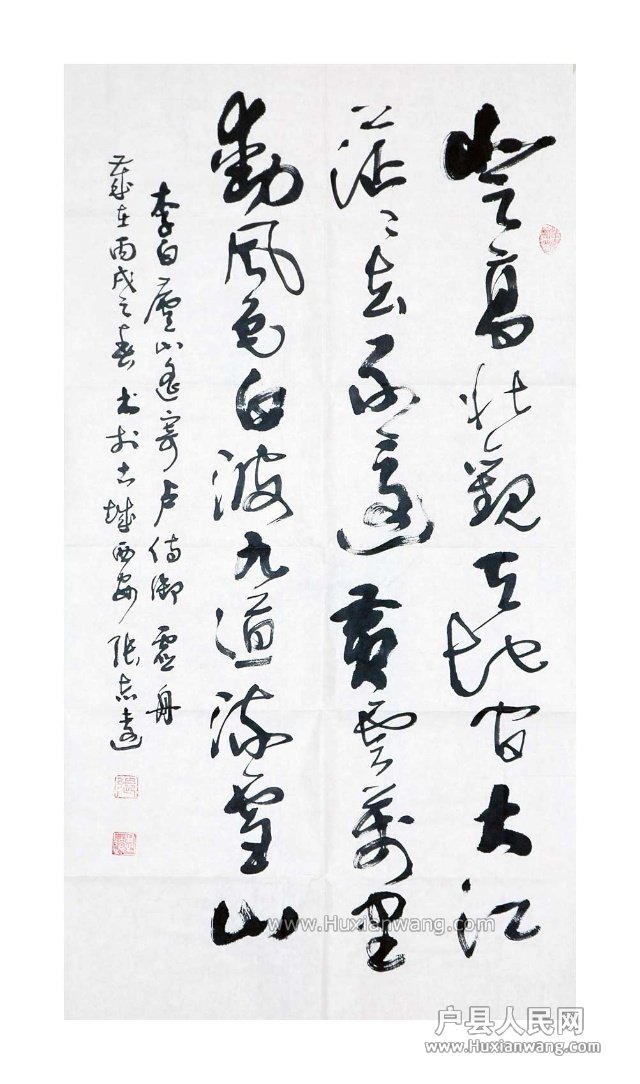 登高壮观天地间大江
茫茫去不还黄云万里
動風色白波九道流雪山
李白廬山遙寄卢侍御虚舟
歲在丙戌之春書於古城西安張志遠
www.Huxianwang.com
户县人民网
www.Huxianwang.com